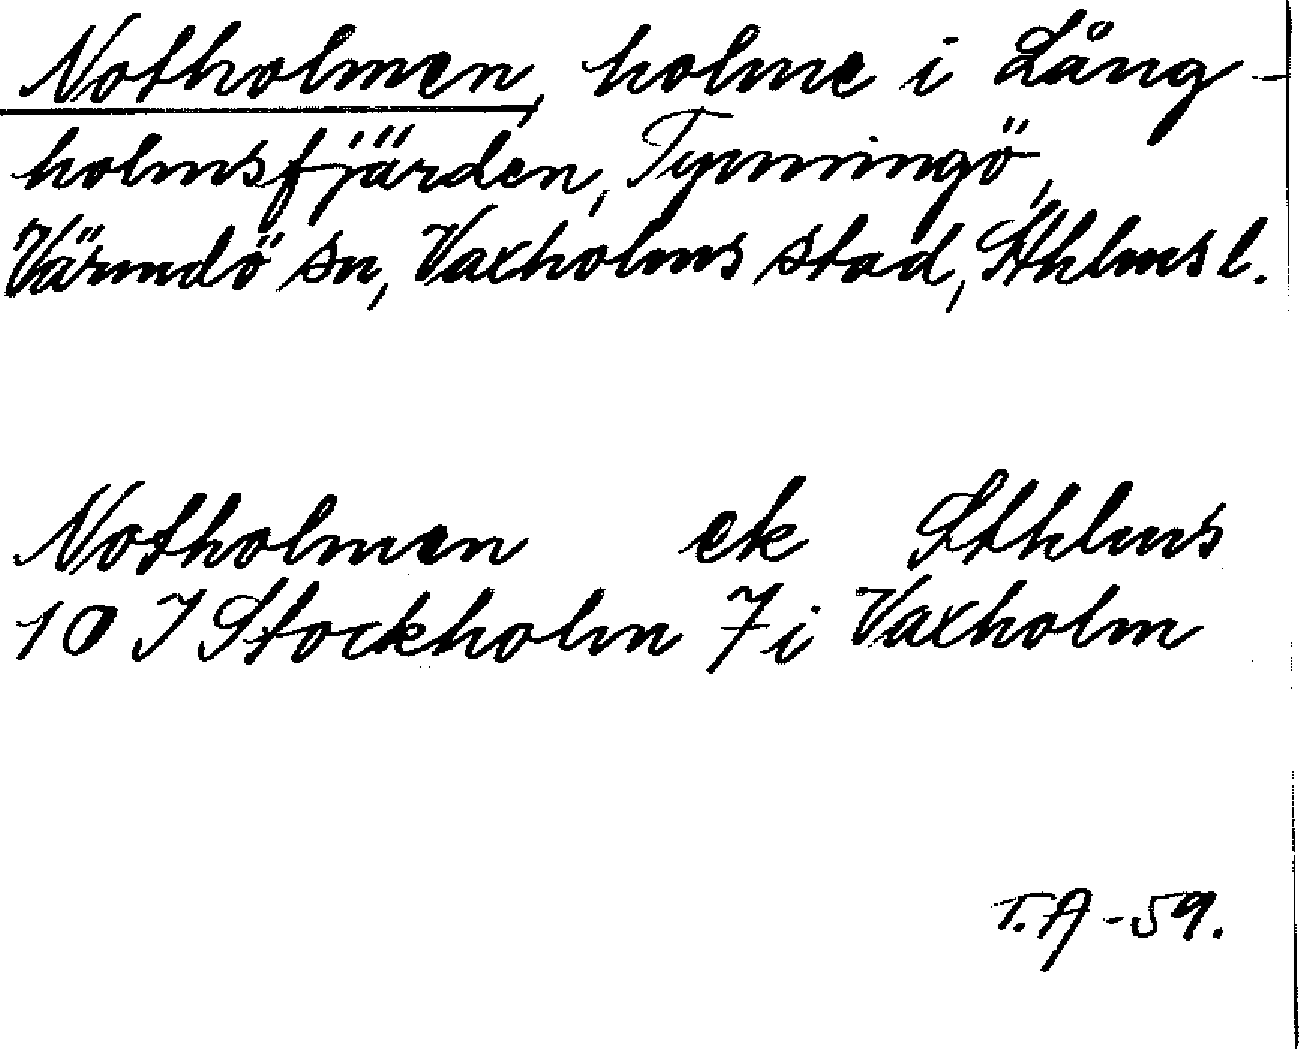 Notholmen, holme i Lång-
holmsfjärden, Tynningö,
Värmdö sn, Vaxholms stad, Sthlms l.
Notholmen ek Sthlms
10 I Stockholm 7 i Vaxholm
T.A -59.